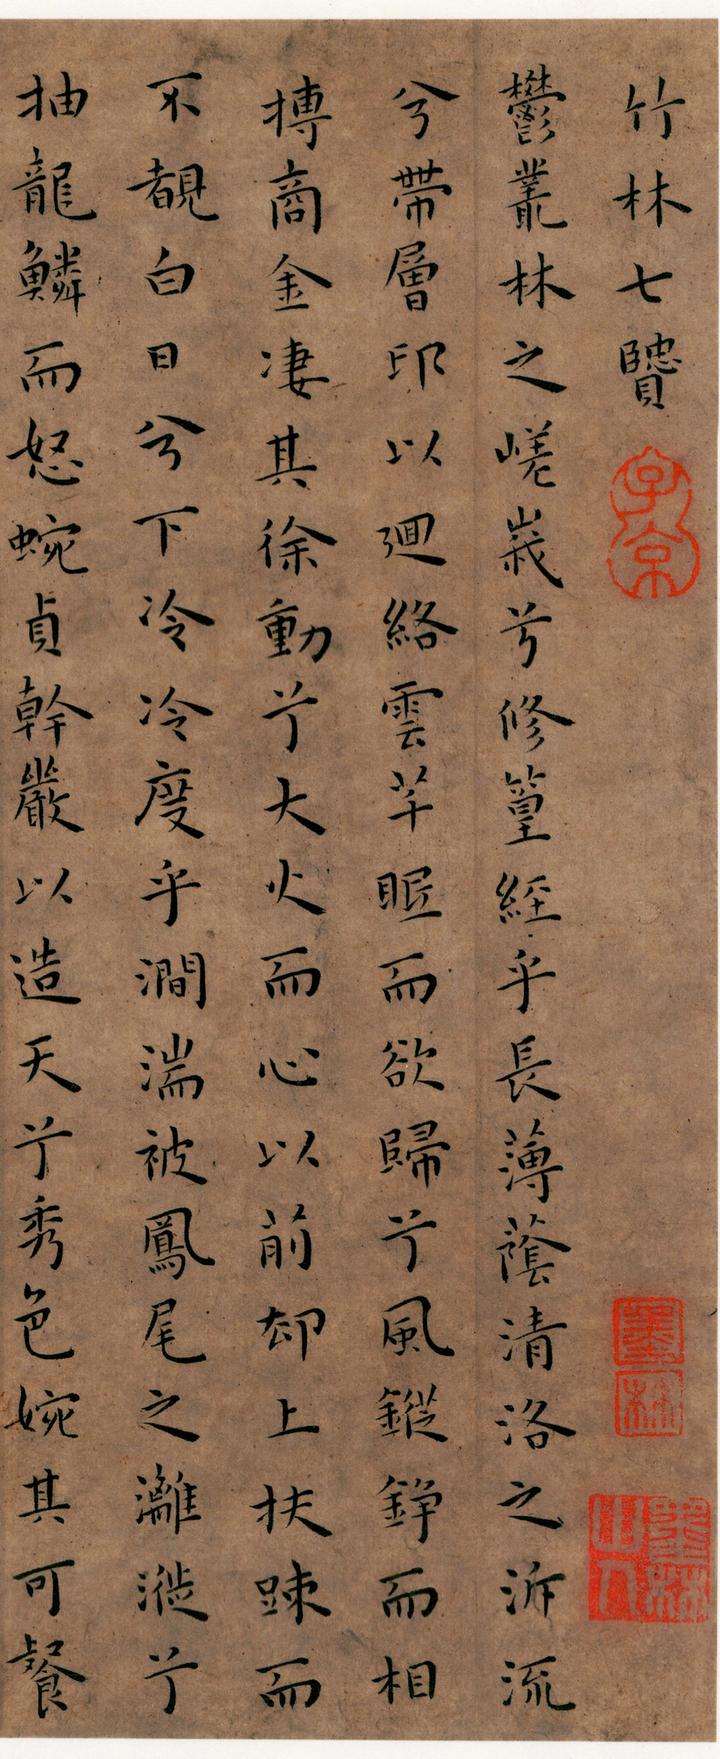 竹林七贒
子京
墨林
墨林山人
鬱叢林之嵯峩兮修篁經乎長薄蔭清洛之泝流
兮帶層卬以迴絡雲芊眠而欲歸兮風鏦錚而相
摶商金凄其徐動兮大火而心以前却上扶踈而
不覩白日兮下冷冷度乎澗湍被鳳尾之灕漇兮
抽龍鱗而怒蜿貞幹嚴以造天兮秀色婉其可餐